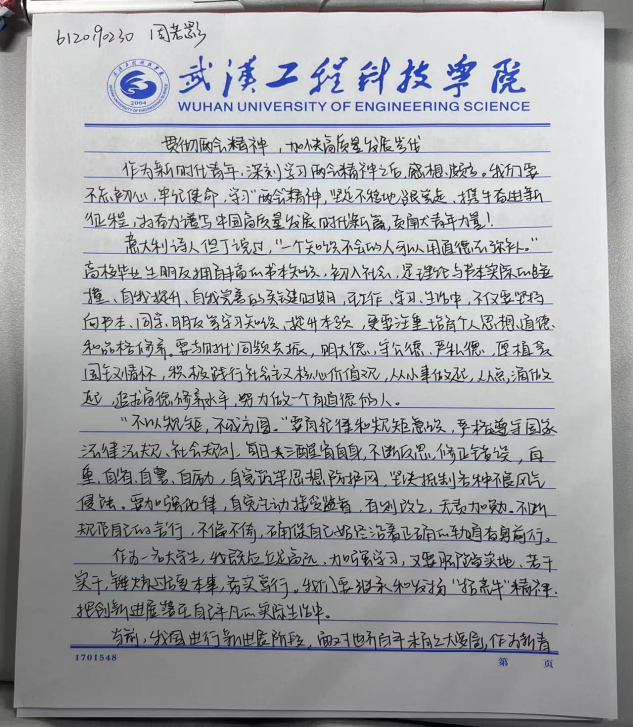 612090230 周若影
武汉工程科技学院
WUHAN UNIVERSITY OF ENGINEERING SCIENCE
2004
贯彻两会精神,加快高质量发展步伐
作为新时代青年,深刻学习两会精神之后,感想颇多。我们要
不忘初心,牢记使命,学习两会精神,坚定不移地跟党走,携手奋进新
征程,努力谱写中国高质量发展时代新篇,贡献青年力量!
意大利诗人但丁说过,“一个知识不全的人可以用道德去弥补。”
高校毕业生朋友拥有丰富的书本知识,初入社会,是理论与实际的碰
撞、自我提升、自我完善的关键时期,在工作、学习、生活中,不仅要坚持
向书本、同学、朋友等学习知识、提升本领,更要注重培育个人思想、道德
和品格修养。要与时代同频共振,明大德、守公德、严私德,厚植爱
国主义情怀,积极践行社会主义核心价值观,从小事做起,从点滴做
起,追求高德修养水平,努力做一个有道德的人。
“不以规矩,不成方圆。”要有纪律和规矩意识,严格遵守国家
法律法规、社会规则,每日去洒醒省自身,不断反思,修正错误,自
重、自省、自警、自励,自觉筑牢思想防护网,坚决抵制各种不良风气
侵蚀。要加强他律,自觉主动接受监督,有则改之,无责加勉。不断
规范自己的言行,不偏不倚,确保自己始终沿着正确的轨道奋勇前行。
作为一名大学生,我既应立足高远,加强学习,又要脚踏实地、苦干
实干,锤炼过硬本事,务实笃行。我们要继承和发扬“拓荒牛”精神,
把创新进展落在自己平凡的实际生活中。
当前,我国进行新进展阶段,面对世界百年未有之大变局,作为新青
1701548
第 页